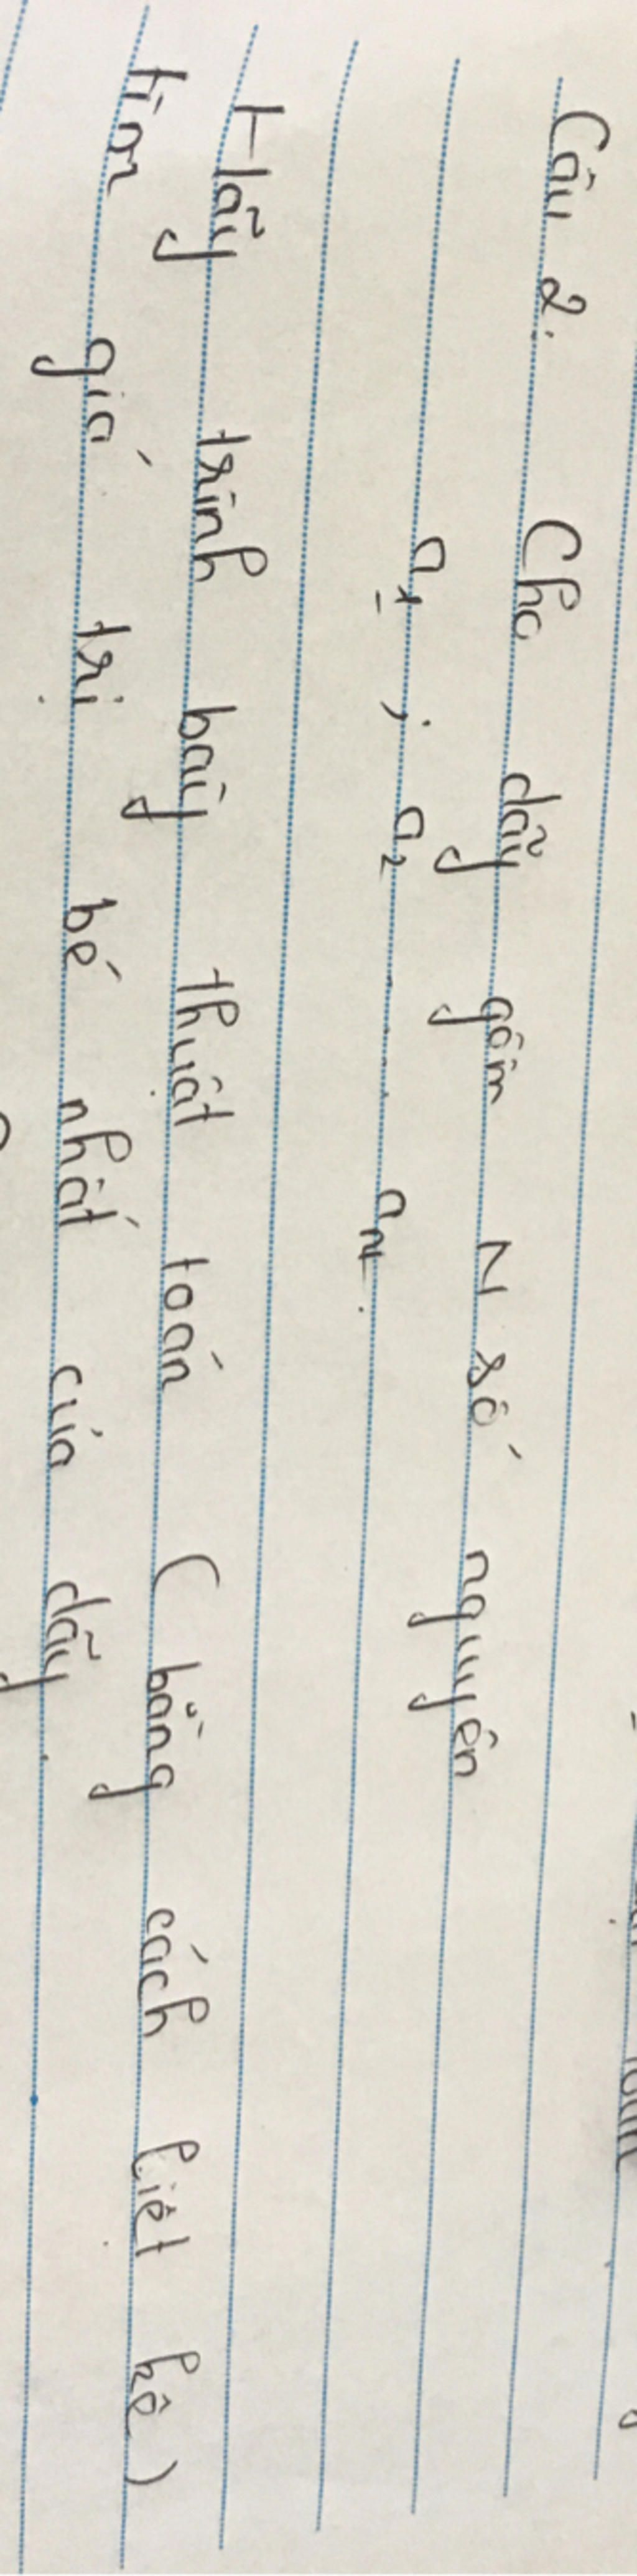 Câu 2: Cho dãy gồm N số nguyên
a1 ; a2 .... an.
Hãy trình bày thuật toán (bằng cách liệt kê)
tìm giá trị bé nhất của dãy.